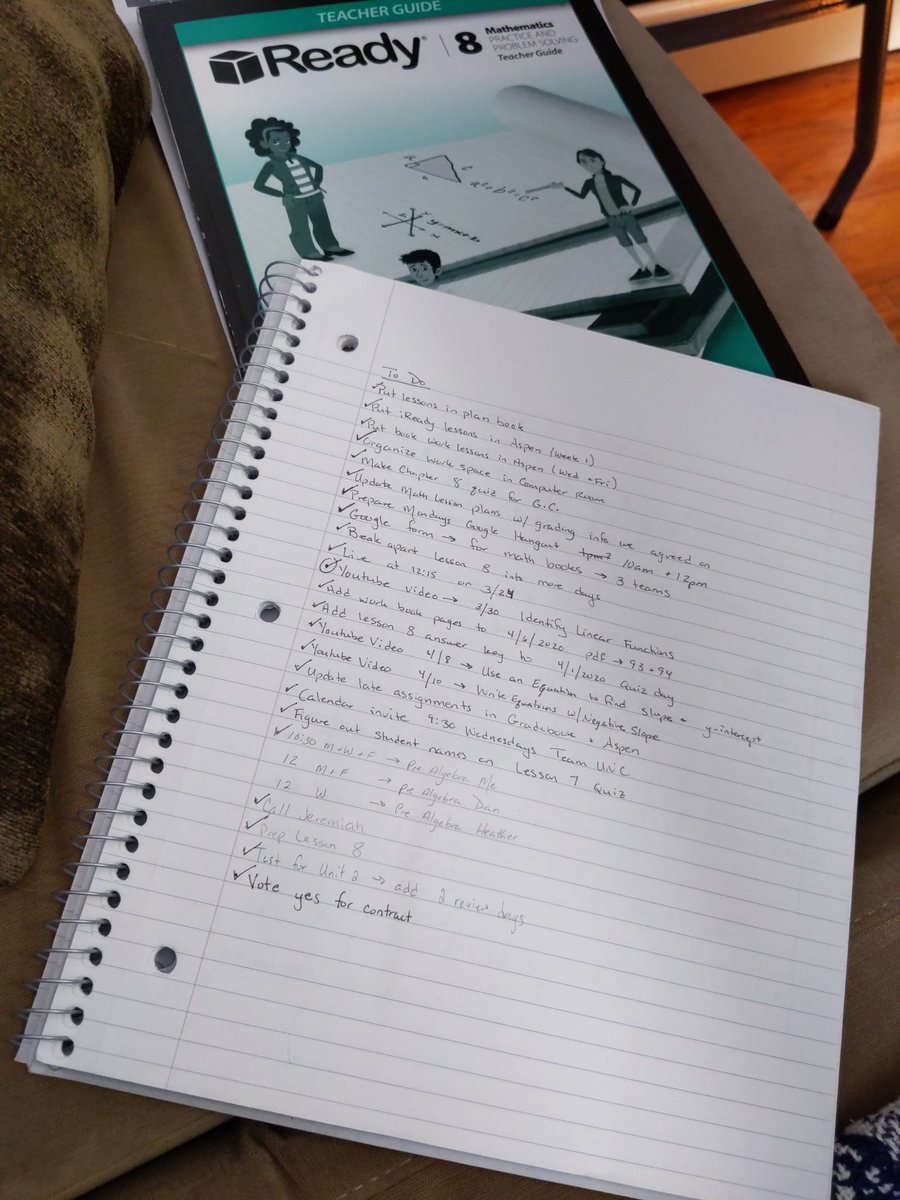 TEACHER GUIDE
Ready® 8 Mathematics
PRACTICE AND
PROBLEM SOLVING
Teacher Guide
y=mx+b
x
To Do
✓Put lessons in plan book
✓Put iReady lessons in Aspen (Week 1)
✓Put book work lessons in Aspen (Wed + Fri)
✓Organize work space in Computer Room
✓Make Chapter 8 quiz for G.C.
✓Update Math Lesson plans w/ grading info we agreed on
✓Prepare Mondays Google Hangout 10am + 12pm
✓Google form → for math books → 3 teams
✓Break apart lesson 8 into more days
✓Live at 12:15 on 3/24
✓Youtube video → 3/30 Identify Linear Functions
✓Add work book pages to 4/6/2020 pdf → 93 + 94
✓Add lesson 8 answer key to 4/1/2020 Quiz day
✓Youtube Video 4/8 → Use an Equation to find slope + y-intercept
✓Youtube Video 4/10 → Write Equations w/ Negative Slope
✓Update late assignments in Gradebook + Aspen
✓Calendar invite 9:30 Wednesdays Team UniC
✓Figure out student names on Lesson 7 Quiz
✓10:30 M+W+F → Pre Algebra Me
12 M+F → Pre Algebra Dan
12 W → Pre Algebra Heather
✓Call Jeremiah
✓Prep Lesson 8
✓Test for Unit 2 → add 2 review days
✓Vote yes for contract